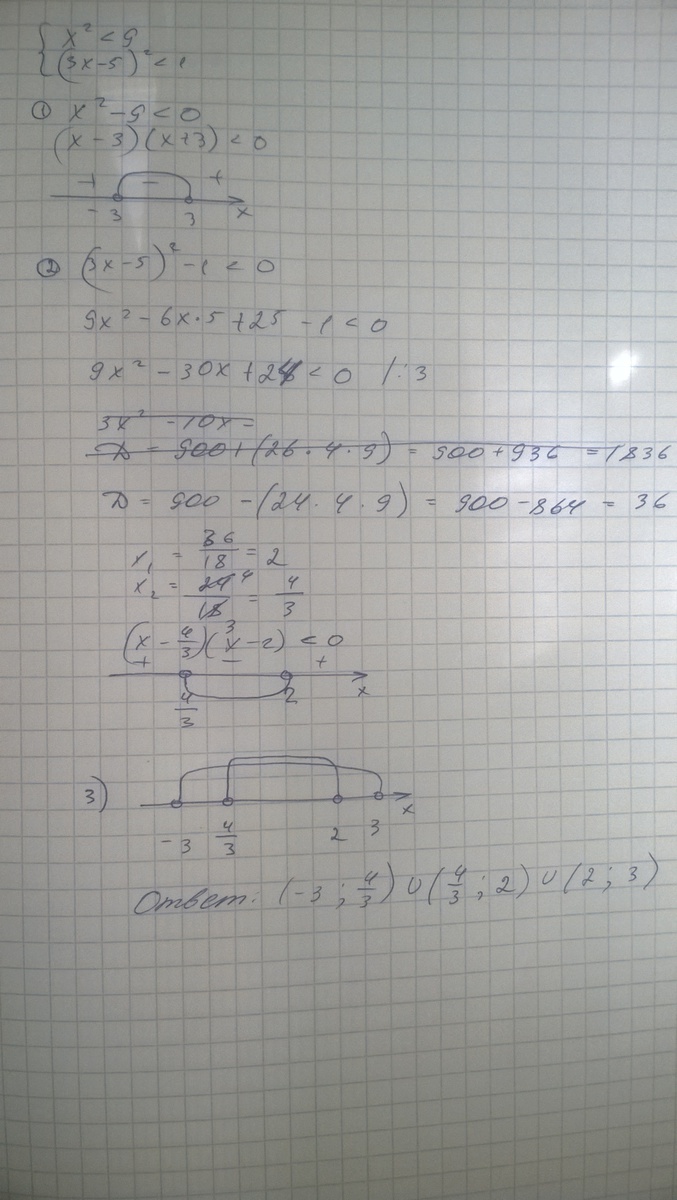 { x² < 9
(3x-5)² < 1
① x² - 9 < 0
(x - 3)(x+3) < 0
+ - +
-3 3 x
② (3x-5)² - 1 < 0
9x² - 6x·5 + 25 - 1 < 0
9x² - 30x + 24 < 0 /:3
3x² - 10x =
D = 900+(26·4·9) = 900+936 = 1836
D = 900 - (24·4·9) = 900 - 864 = 36
x₁ = 36/18 = 2
x₂ = 24 4/18 3 = 4/3
(x - 4/3)(x-2) < 0
+ - +
4/3 2 x
3)
-3 4/3 2 3 x
Ответ: (-3; 4/3) ∪ (4/3; 2) ∪ (2; 3)